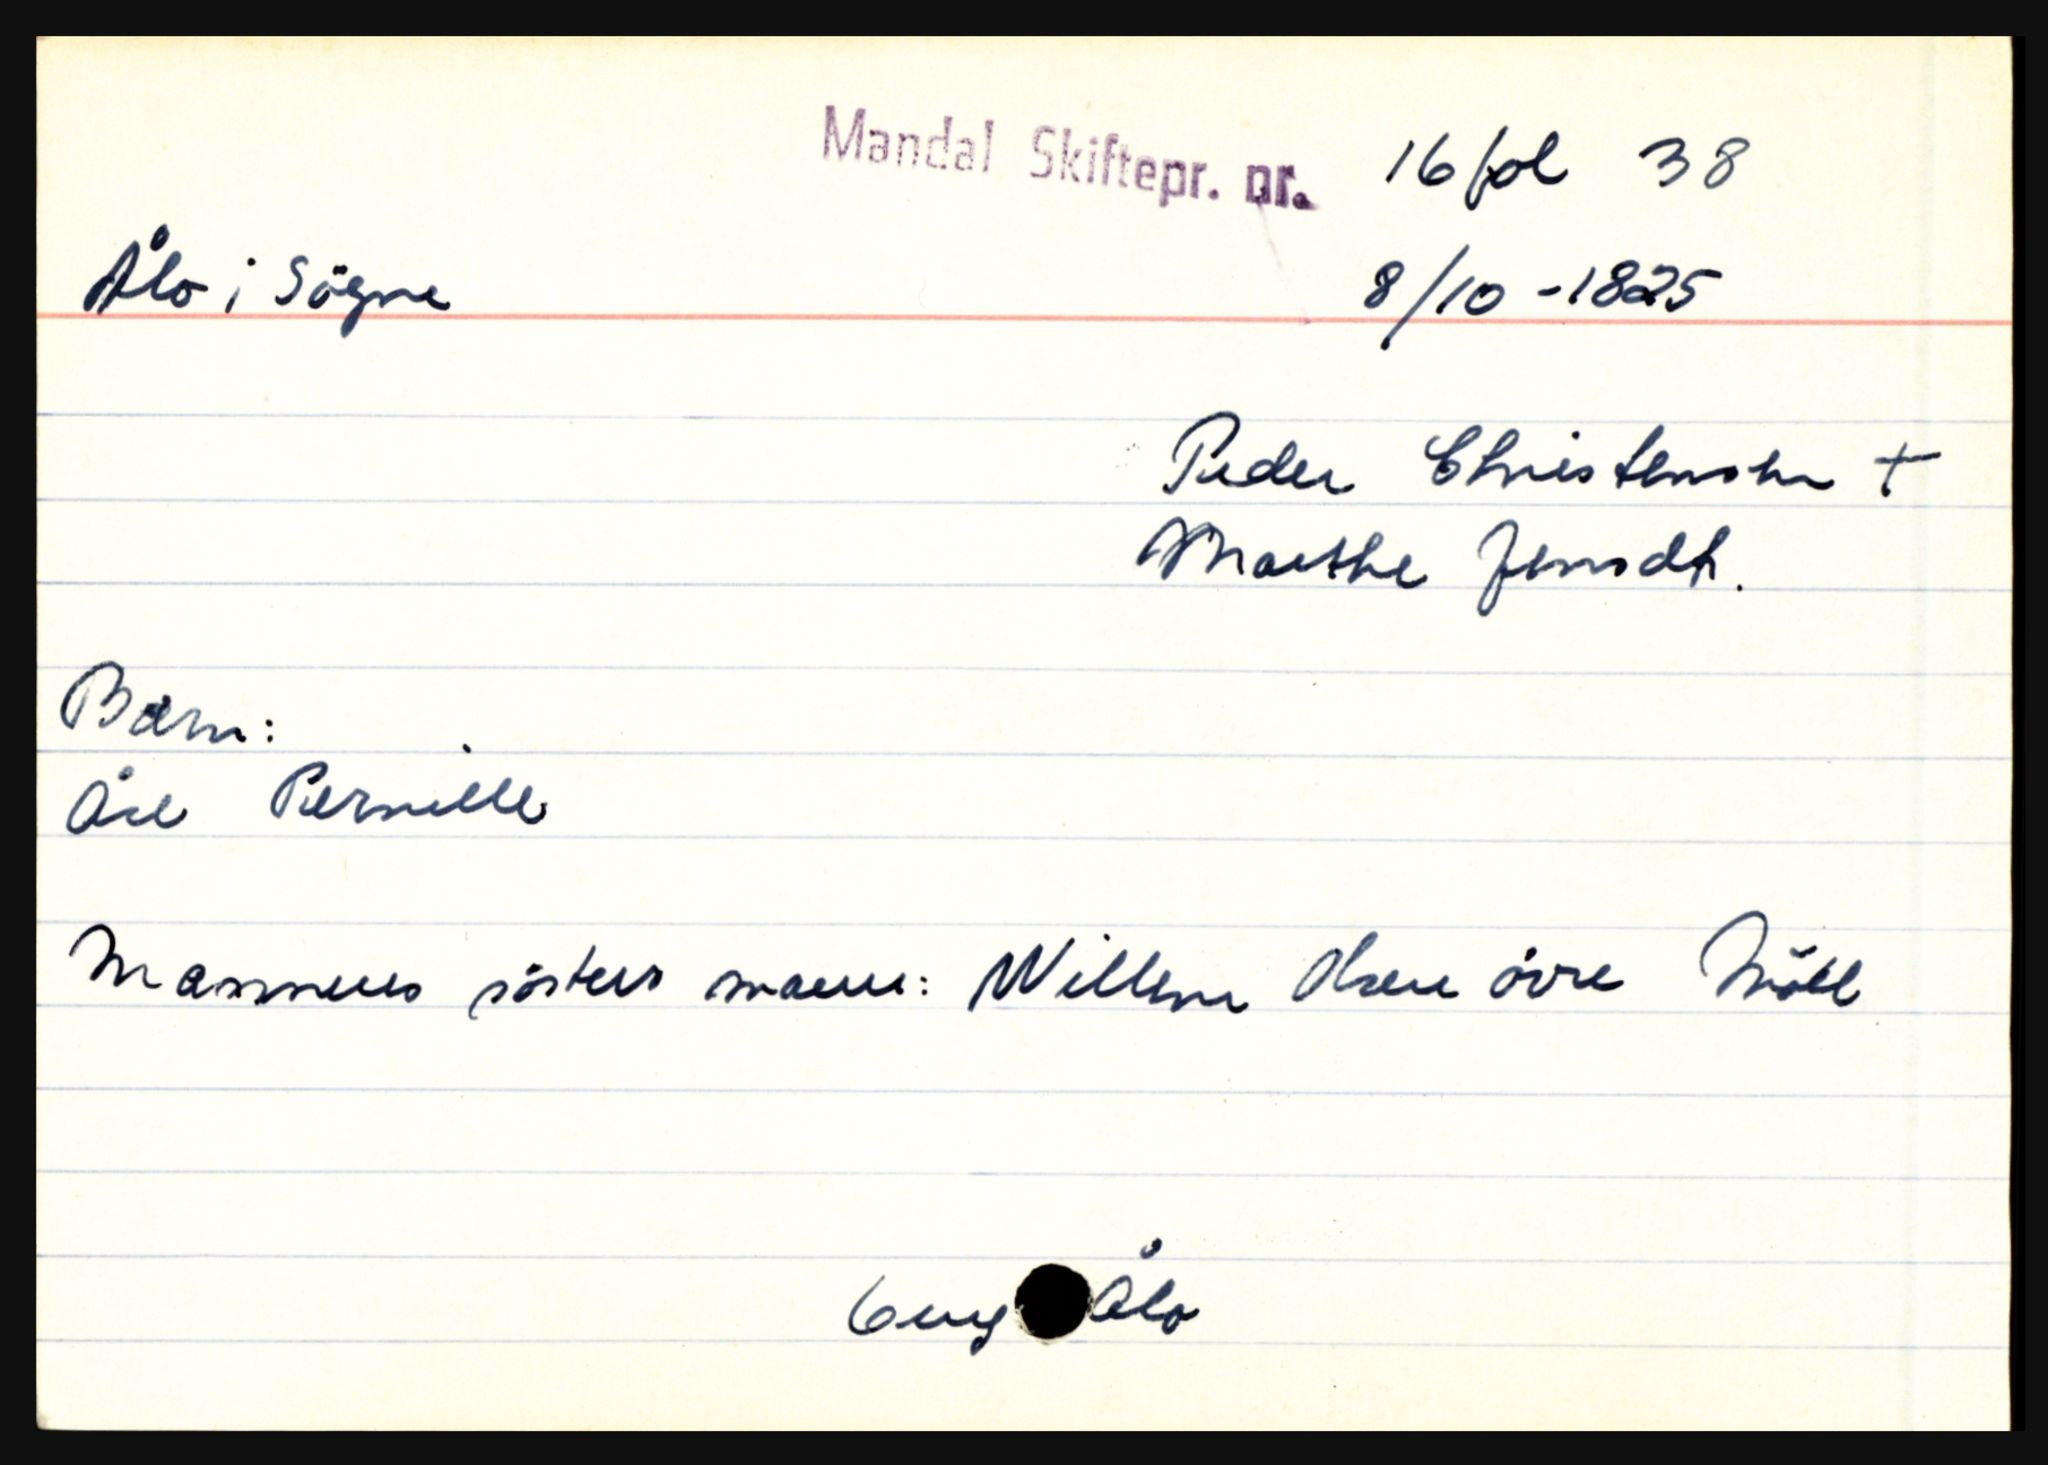 Mandal Skiftepr. nr. 16 fol 38
Ålo i Sögne 8/10 - 1825
Peder Christensen +
Marthe Jensdtr.
Barn:
Åse Pernille
Mannens sösters mann: Willem Olsen övre
6 ung Ålo